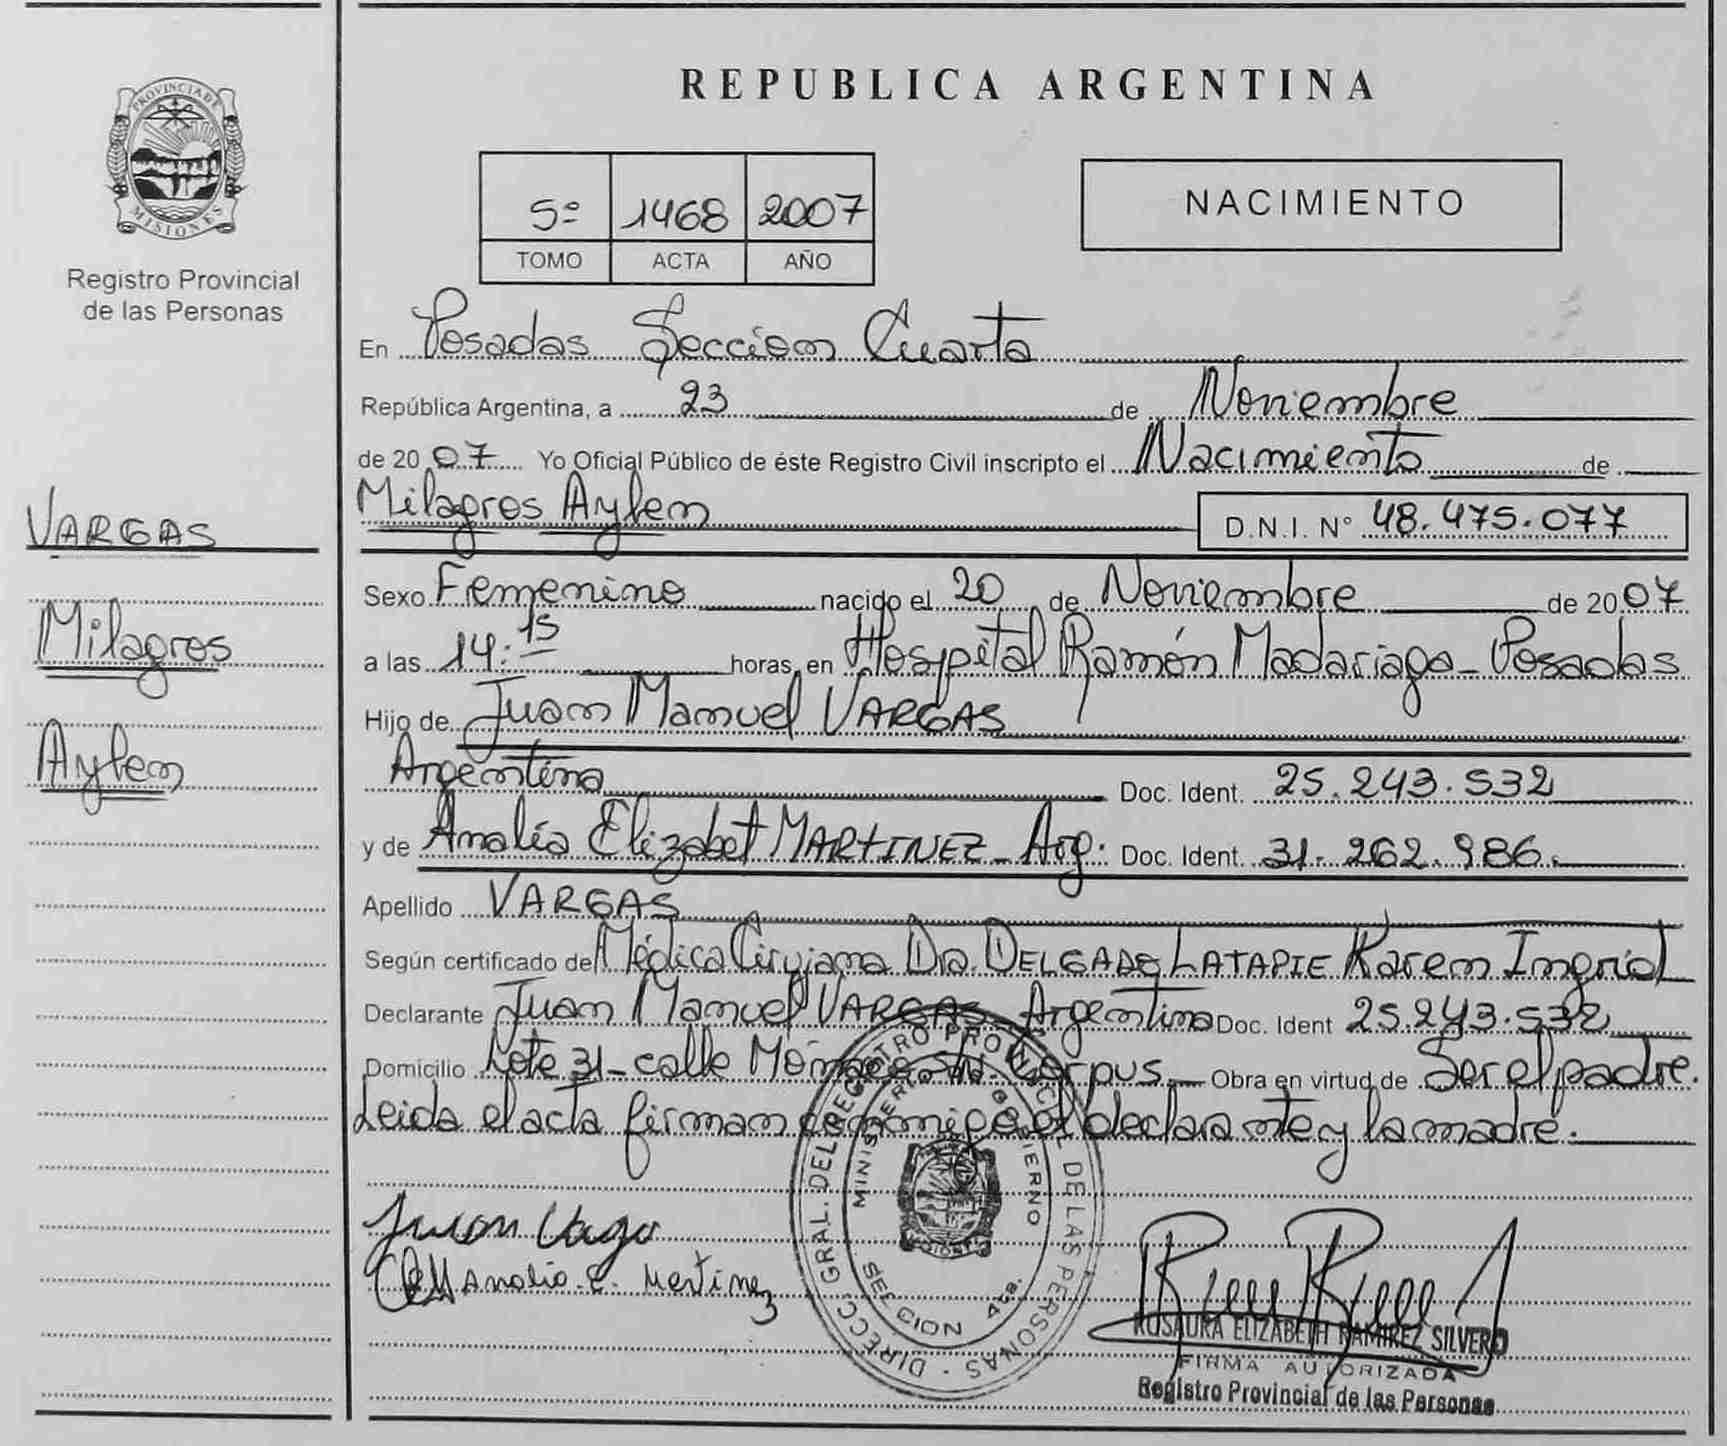 PROVINCIA DE
MISIONES
Registro Provincial
de las Personas
VARGAS
Milagros
Aylen
REPUBLICA ARGENTINA
5º 1468 2007
TOMO ACTA AÑO
NACIMIENTO
En Posadas Seccion Cuarta
República Argentina, a 23 de Noviembre
de 2007 Yo Oficial Público de éste Registro Civil inscripto el Nacimiento de
Milagros Aylen D.N.I. Nº 48.475.077
Sexo Femenino nacido el 20 de Noviembre de 2007
a las 14:15 horas, en Hospital Ramón Madariaga - Posadas
Hijo de Juan Manuel VARGAS
Argentino Doc. Ident. 25.243.532
y de Amalia Elizabet MARTINEZ - Arg. Doc. Ident. 31.262.986.
Apellido VARGAS
Según certificado de Médica Cirujana Dra. DELGADO LATAPIE Karem Ingrid
Declarante Juan Manuel VARGAS Argentino Doc. Ident 25.243.532
Domicilio Lote 31 - calle S/N. Corpus. Obra en virtud de Ser el padre.
Leida el acta firman conmigo el declarante y la madre.
Juan Vargas
Amalio. E. Martinez
DIRECC. GRAL. DEL REGISTRO PROVINCIAL DE LAS PERSONAS
MINISTERIO GOBIERNO
SECCION 4ta.
ROSAURA ELIZABETH RAMIREZ SILVERO
FIRMA AUTORIZADA
Registro Provincial de las Personas